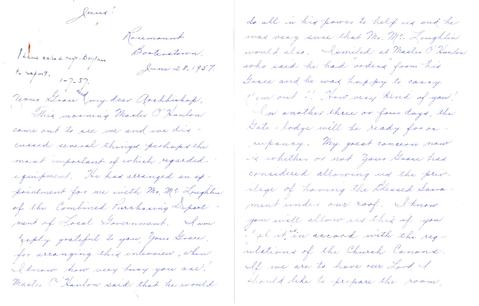 Jesus!
Rosemount
Booterstown,
June 28, 1957.
to report.
1-7-57.
Your Grace & my dear Archbishop,
This morning Master O'Hanlon
came out to see me and we dis-
cussed several things, perhaps the
most important of which regarded
equipment. He has arranged an ap-
pointment for me with Mr. Mc Loughlin
of the Combined Purchasing Depart-
ment of Local Government. I am
deeply grateful to you, Your Grace,
for arranging this interview, when
I know how very busy you are!
Master O'Hanlon said that he would
do all in his power to help us and he
was very sure that Mr. Mc Loughlin
would also. I smiled at Master O'Hanlon
who said he had "orders" from his
Grace and he was happy to carry
'em out"! How very kind of you!
In another three or four days, the
Gate-lodge will be ready for oc-
cupancy. My great concern now
is whether or not Your Grace has
considered allowing us the priv-
ilege of having the Blessed Sacra-
ment under our roof. I know
you will allow us this if you
in accord with the reg-
ulations of the Church Canons.
If we are to have our Lord I
should like to prepare the room,